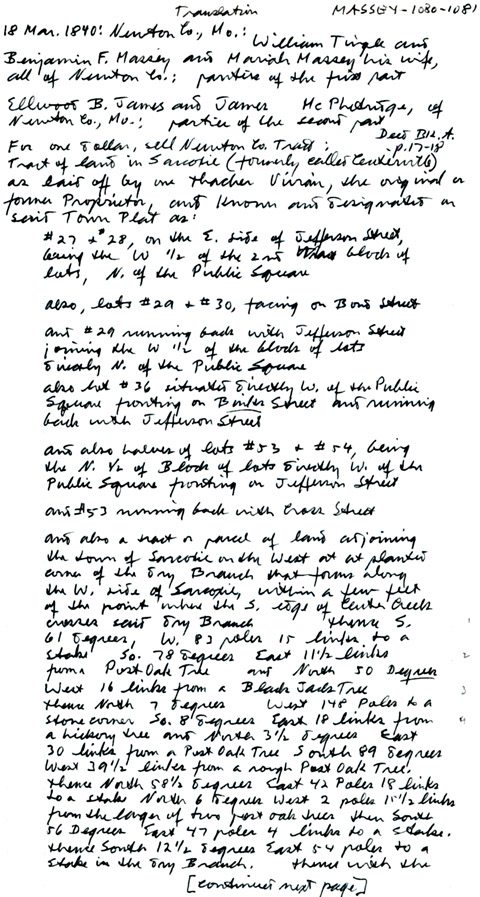 Translation MASSEY-1080-1081
18 Mar. 1840: Newton Co., Mo.: William Tingle and
Benjamin F. Massey and Mariah Massey his wife,
all of Newton Co.; parties of the first part
Ellwood B. James and James McPhedridge, of
Newton Co., Mo.; parties of the second part
Deed Bk. A.
For one Dollar, sell Newton Co. Tract; p.17-18
Tract of land in Sarcoxie (formerly called Centerville)
as laid off by one Thacher Vivian, the original or
former Proprietor, and known and designated on
said Town Plat as:
#27 + #28, on the E. side of Jefferson Street,
being the W 1/2 of the 2nd block of
lots, N. of the Public Square
also, lots #29 + #30, facing on Bond Street
and #29 running back with Jefferson Street
joining the W 1/2 of the block of lots
directly N. of the Public Square
also lot #36 situated directly W. of the Public
Square fronting on Street and running
back with Jefferson Street
and also halves of lots #53 + #54, being
the N. 1/2 of Block of lots directly W. of the
Public Square fronting on Jefferson Street
and #53 running back with Cross Street
and also a tract or parcel of land adjoining
the town of Sarcoxie on the West at at planted
corner of the Dry Branch that forms along
the W. side of Sarcoxie, within a few feet
of the point where the S. edge of Center Creek
crosses said Dry Branch thence S.
61 degrees, W. 83 poles 15 links to a
stake So. 78 degrees East 11 1/2 links
from a Post Oak Tree and North 50 Degrees
West 16 links from a Black Jack Tree
thence North 7 degrees West 148 Poles to a
stone corner So. 8 degrees East 18 links from
a hickory tree and North 3 1/2 degrees East
30 links from a Post Oak Tree South 89 degrees
West 39 1/2 links from a rough Post Oak Tree.
thence North 58 1/2 degrees East 42 Poles 18 links
to a stake North 6 degrees West 2 poles 15 1/2 links
from the larger of two post oak trees then South
56 Degrees East 47 poles 4 links to a stake.
thence South 12 1/2 degrees East 54 poles to a
stake in the Dry Branch. thence with the
[continued next page]